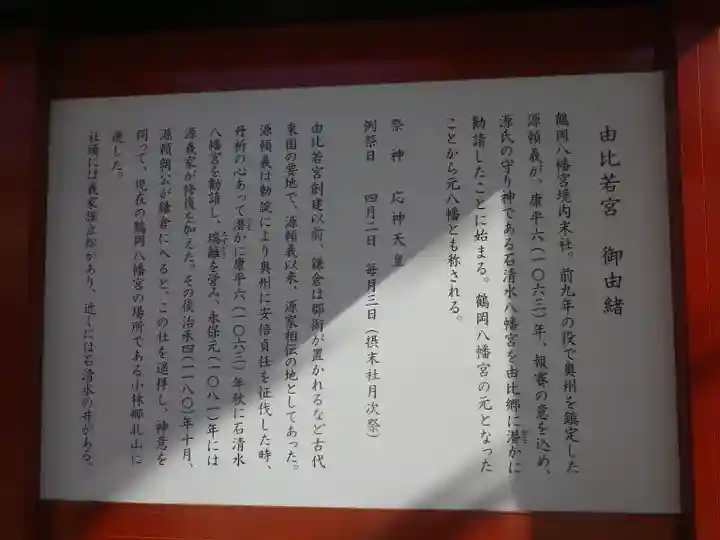 由比若宮 御由緒
鶴岡八幡宮境内末社。前九年の役で奥州を鎮定した
源頼義が、康平六(一〇六三)年、報賽の意を込め、
源氏の守り神である石清水八幡宮を由比郷に潜かに
勧請したことに始まる。鶴岡八幡宮の元となった
ことから元八幡とも称される。
祭神 応神天皇
例祭日 四月二日 毎月三日(摂末社月次祭)
由比若宮創建以前、鎌倉は郡衙が置かれるなど古代
東国の要地で、源頼義以来、源家相伝の地としてあった。
源頼義は勅定により奥州に安倍貞任を征伐した時、
丹祈の心あって潜かに康平六(一〇六三)年秋に石清水
八幡宮を勧請し、瑞籬を営み、永保元(一〇八一)年には
源義家が修復を加えた。その後治承四(一一八〇)年十月、
源頼朝公が鎌倉に入ると、この社を遥拝し、神意を
伺って、現在の鶴岡八幡宮の場所である小林郷北山に
遷した。
社頭には義家旗立松があり、近くには石清水の井がある。